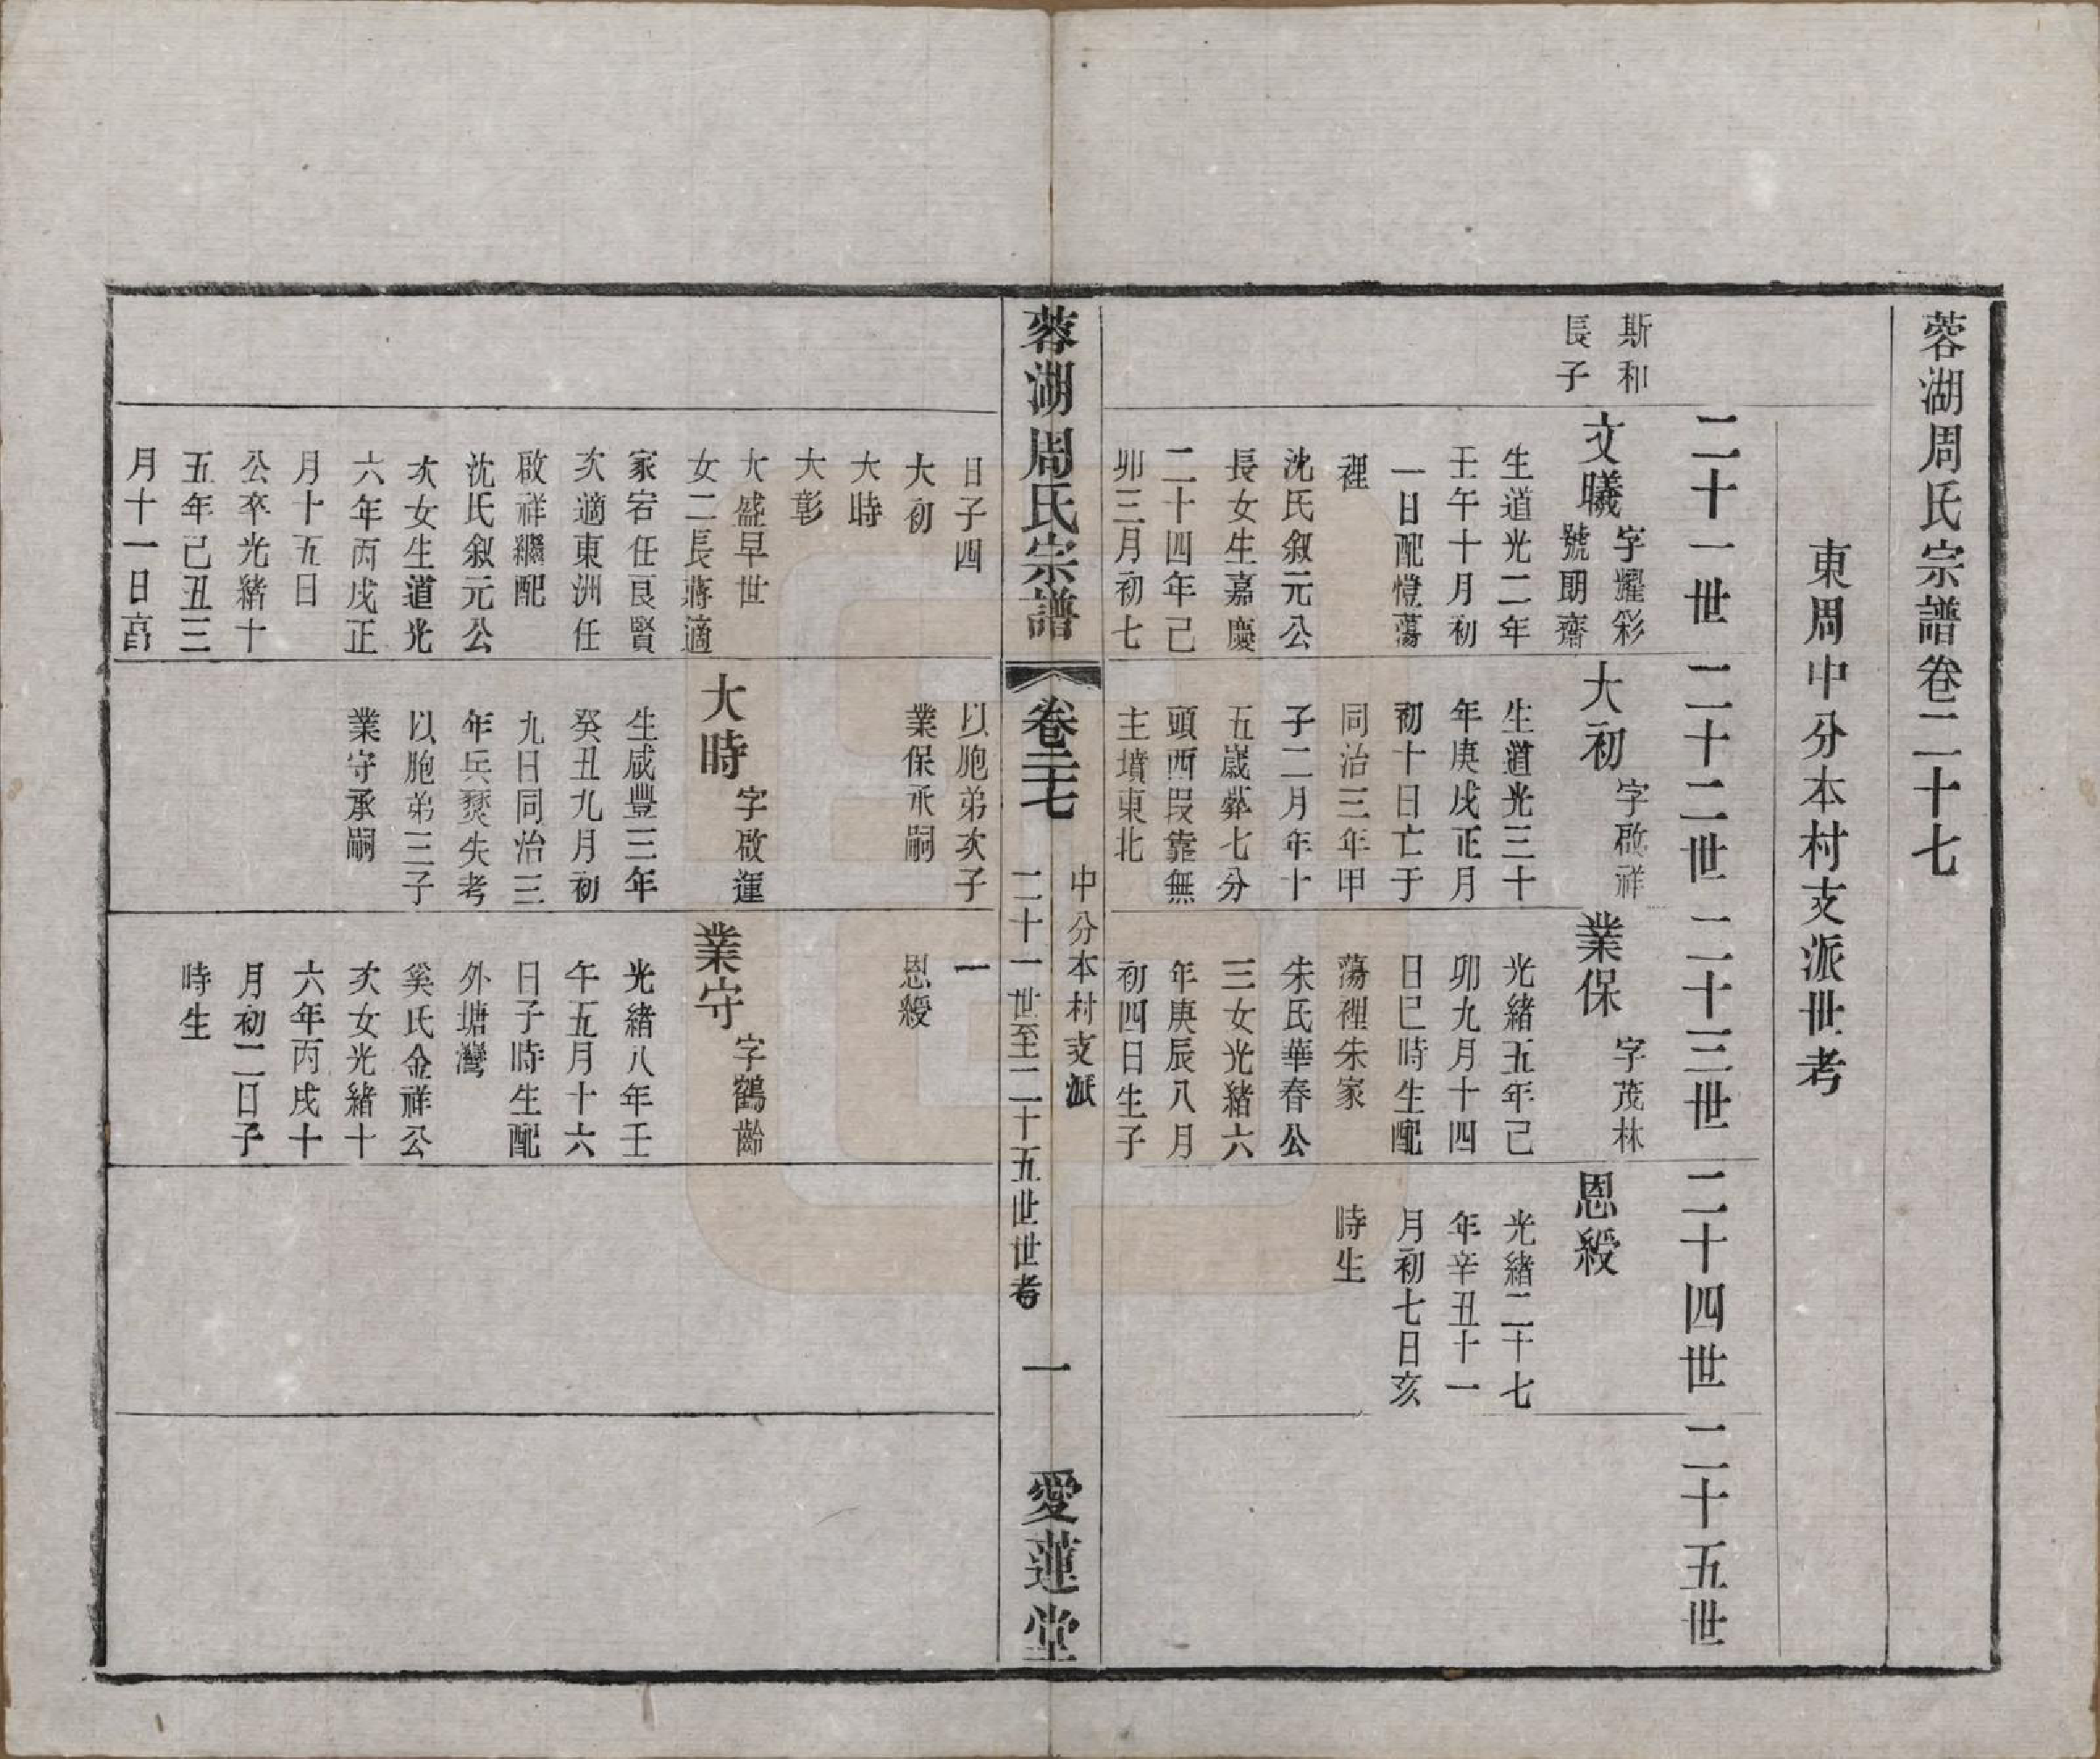 蓉湖周氏宗譜卷二十七
東周中分本村支派世考
二十一世
二十二世
二十三世
二十四世
二十五世
斯和
長子
文曦
字耀彩
號朗齋
生道光二年
壬午十月初
一日配橙蕩
裡
沈氏叙元公
長女生嘉慶
二十四年己
卯三月初七
大初
字啟祥
生道光三十
年庚戌正月
初十日亡于
同治三年甲
子二月年十
五歲葬七分
頭西段靠無
主墳東北
業保
字茂林
光緒五年己
卯九月十四
日巳時生配
蕩裡朱家
朱氏華春公
三女光緒六
年庚辰八月
初四日生子
恩綬
光緒二十七
年辛丑十一
月初七日亥
時生
蓉湖周氏宗譜
卷二十七
中分本村支派
二十一世至二十五世世考
一
愛蓮堂
日子四
大初
大時
大彰
大盛早世
女二長蔣適
家宕任良賢
次適東洲任
啟祥繼配
沈氏叙元公
次女生道光
六年丙戌正
月十五日
公卒光緒十
五年己丑三
月十一日
以胞弟次子
業保承嗣
大時
字啟運
生咸豐三年
癸丑九月初
九日同治三
年兵燹失考
以胞弟三子
業守承嗣
一
恩綬
業守
字鶴齡
光緒八年壬
午五月十六
日子時生配
外塘灣
奚氏金祥公
次女光緒十
六年丙戌十
月初二日子
時生